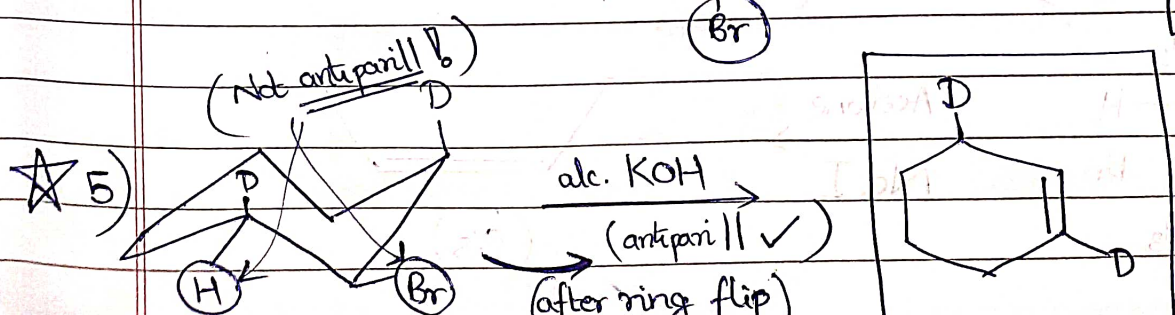 Br
(Not antiparill!)
D
D
5)
D
H
Br
alc. KOH
(antipari || ✓)
(after ring flip)
D